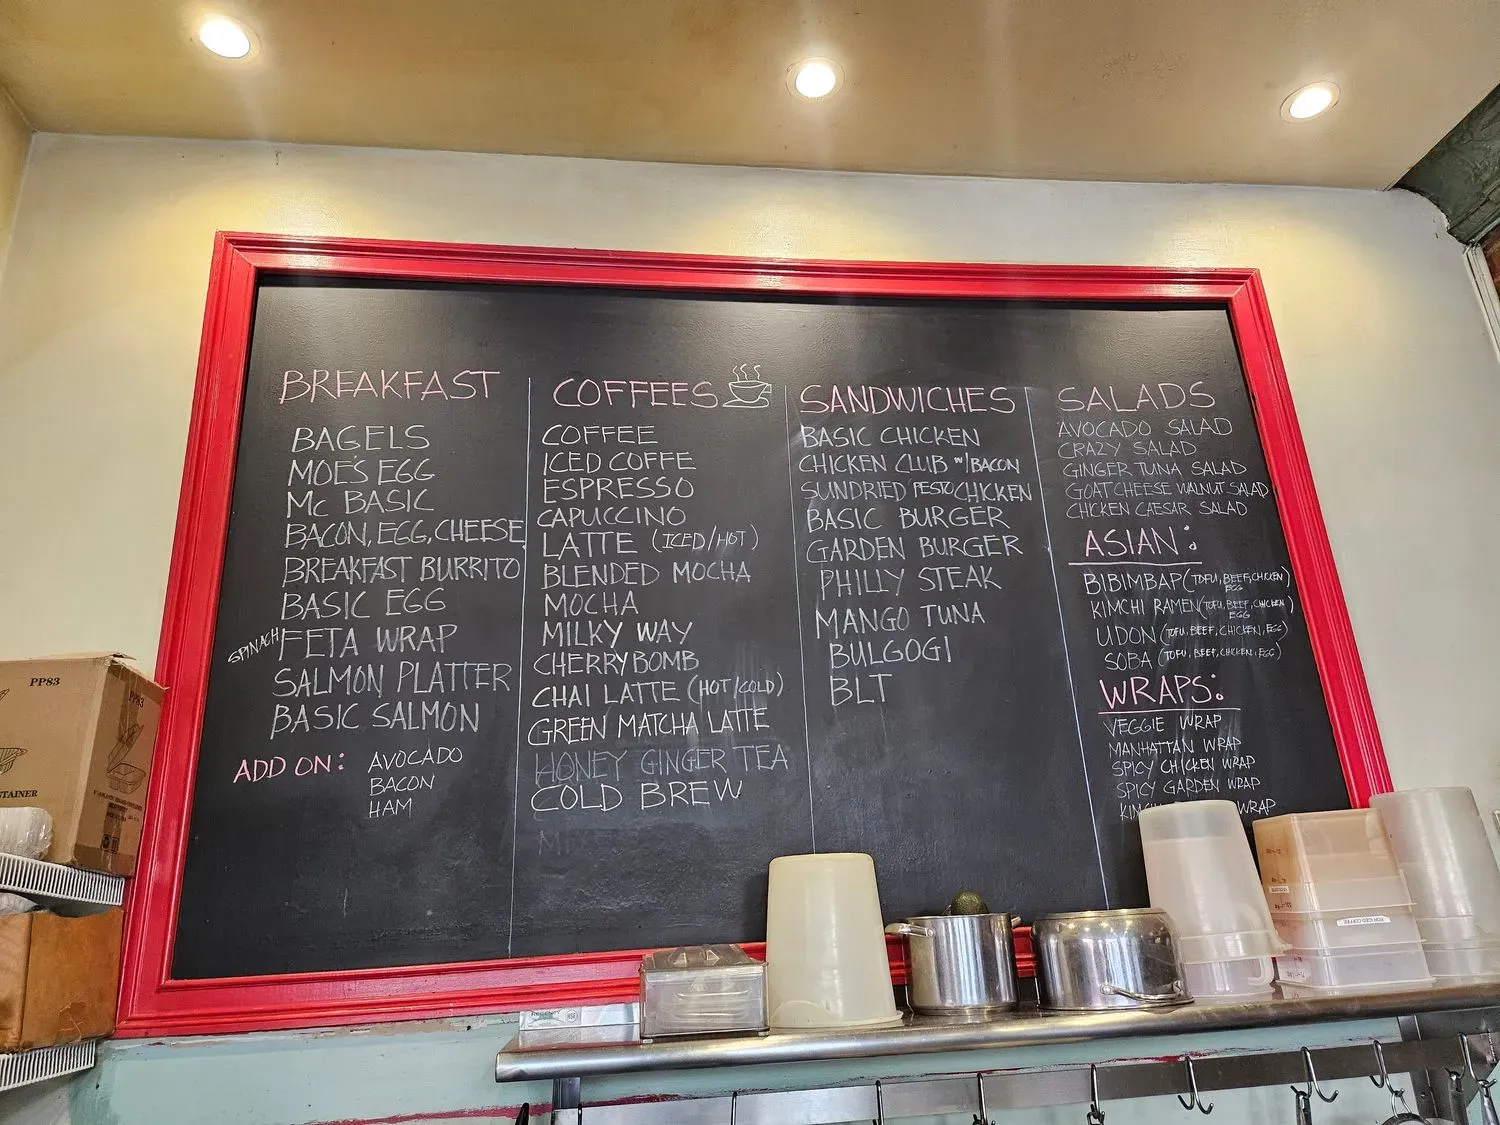 BREAKFAST
BAGELS
MOE'S EGG
MC BASIC
BACON, EGG, CHEESE
BREAKFAST BURRITO
BASIC EGG
SPINACH FETA WRAP
SALMON PLATTER
BASIC SALMON
ADD ON: AVOCADO
BACON
HAM
COFFEES
COFFEE
ICED COFFE
ESPRESSO
CAPUCCINO
LATTE (ICED/HOT)
BLENDED MOCHA
MOCHA
MILKY WAY
CHERRY BOMB
CHAI LATTE (HOT/COLD)
GREEN MATCHA LATTE
HONEY GINGER TEA
COLD BREW
SANDWICHES
BASIC CHICKEN
CHICKEN CLUB w/BACON
SUNDRIED PESTO CHICKEN
BASIC BURGER
GARDEN BURGER
PHILLY STEAK
MANGO TUNA
BULGOGI
BLT
SALADS
AVOCADO SALAD
CRAZY SALAD
GINGER TUNA SALAD
GOAT CHEESE WALNUT SALAD
CHICKEN CAESAR SALAD
ASIAN:
BIBIMBAP (TOFU, BEEF, CHICKEN)
EGG
KIMCHI RAMEN (TOFU, BEEF, CHICKEN)
EGG
UDON (TOFU, BEEF, CHICKEN, EGG)
SOBA (TOFU, BEEF, CHICKEN, EGG)
WRAPS:
VEGGIE WRAP
MANHATTAN WRAP
SPICY CHICKEN WRAP
SPICY GARDEN WRAP
WRAP
PP83
TAINER
FOR ICED COFFEE